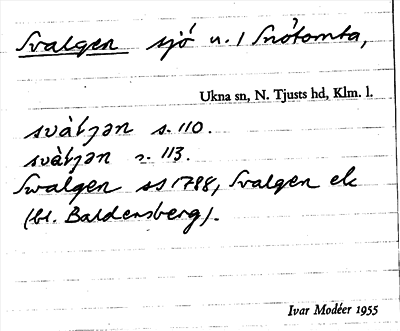 Svalgen sjö n. / Snötomta,
Ukna sn, N. Tjusts hd, Klm. l.
svàlʒən s. 110.
svàlʒən s. 113.
Swalgen SS 1788, Svalgen ek
(bl. Baldersberg).
Ivar Modéer 1955